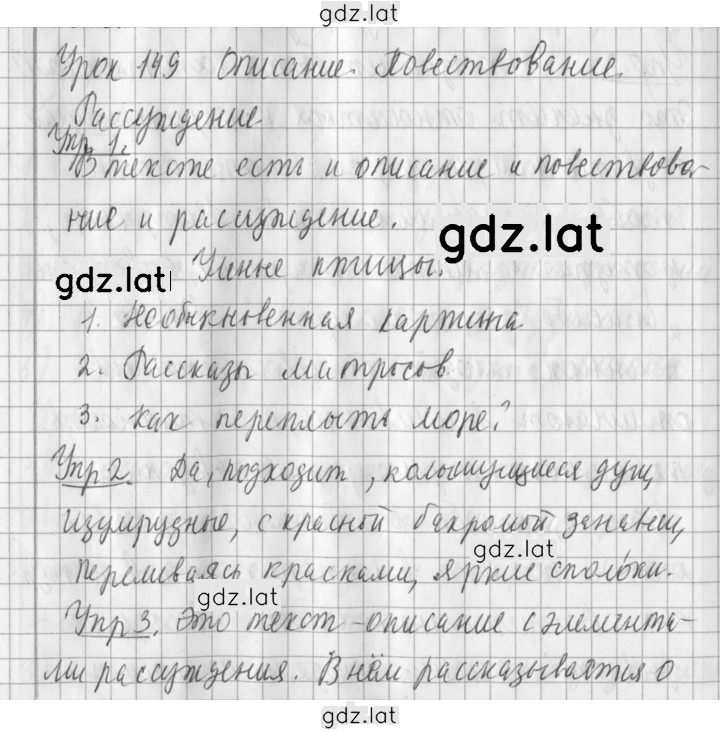 gdz.lat
Урок 149 Описание. Повествование.
Рассуждение
Упр 1.
В тексте есть и описание и повествова-
ние и рассуждение.
gdz.lat
Умные птицы.
gdz.lat
1. Необыкновенная картина
2. Рассказы матросов
3. Как переплыть море?
Упр 2. Да, подходит, колышущиеся
изумрудные, с красной бахромой
gdz.lat
переливаясь красками, яркие сполохи.
gdz.lat
Упр 3. Это текст-описание с элемента-
ми рассуждения. В нём рассказывается о
gdz.lat